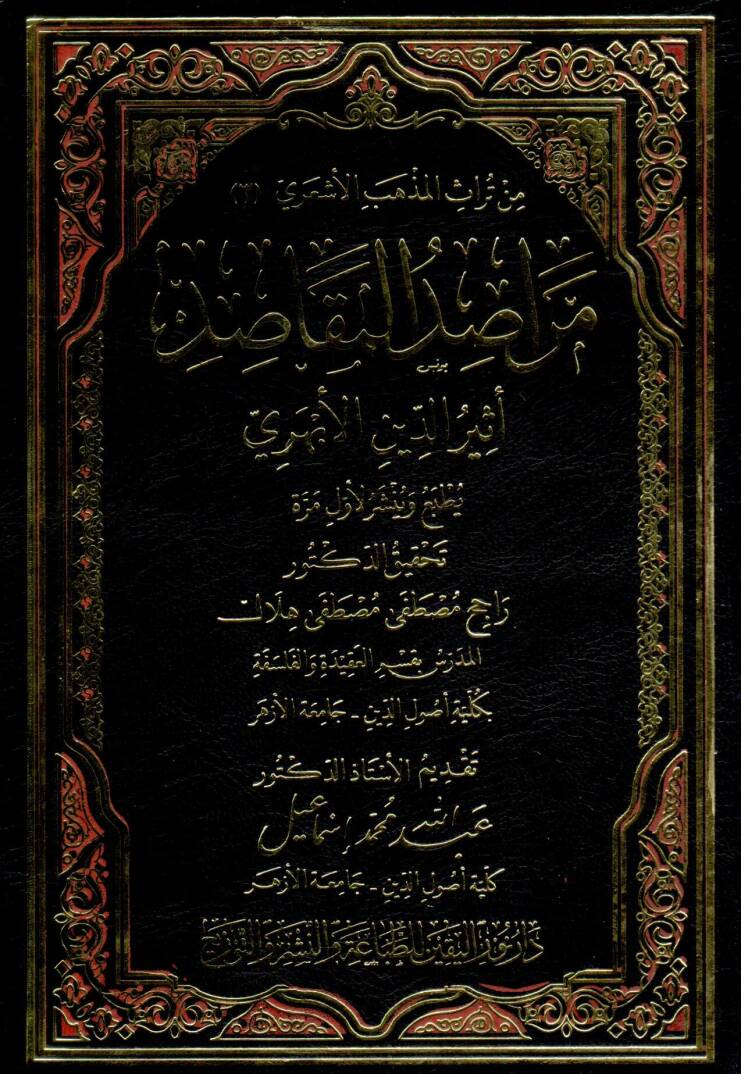 مِنْ تُرَاثِ المَذْهَبِ الأَشْعَرِي (٣)
مَرَاصِدُ المَقَاصِدِ
أَثِيرُ الدِّينِ الأَبْهَرِيّ
يُطْبَعُ وَيُنْشَرُ لأَوَّلِ مَرَّة
تَحْقِيقُ الدكْتُور
رَاجِح مُصْطَفَى مُصْطَفَى هِلَال
المدَرِّسُ بِقِسْمِ العَقِيدَةِ وَالفَلْسَفَةِ
بِكُلِّيَةِ أُصُولِ الدِّينِ - جَامِعَة الأَزْهَر
تَقْدِيمُ الأُسْتَاذ الدكْتُور
عَبد الله مُحَمَّد إِسْمَاعيل
كُلِّيَة أُصُولِ الدِّينِ - جَامِعَة الأَزْهَر
دَار نُور اليَقِين لِلطِّبَاعَةِ وَالنَّشْرِ وَالتَّوْزِيع